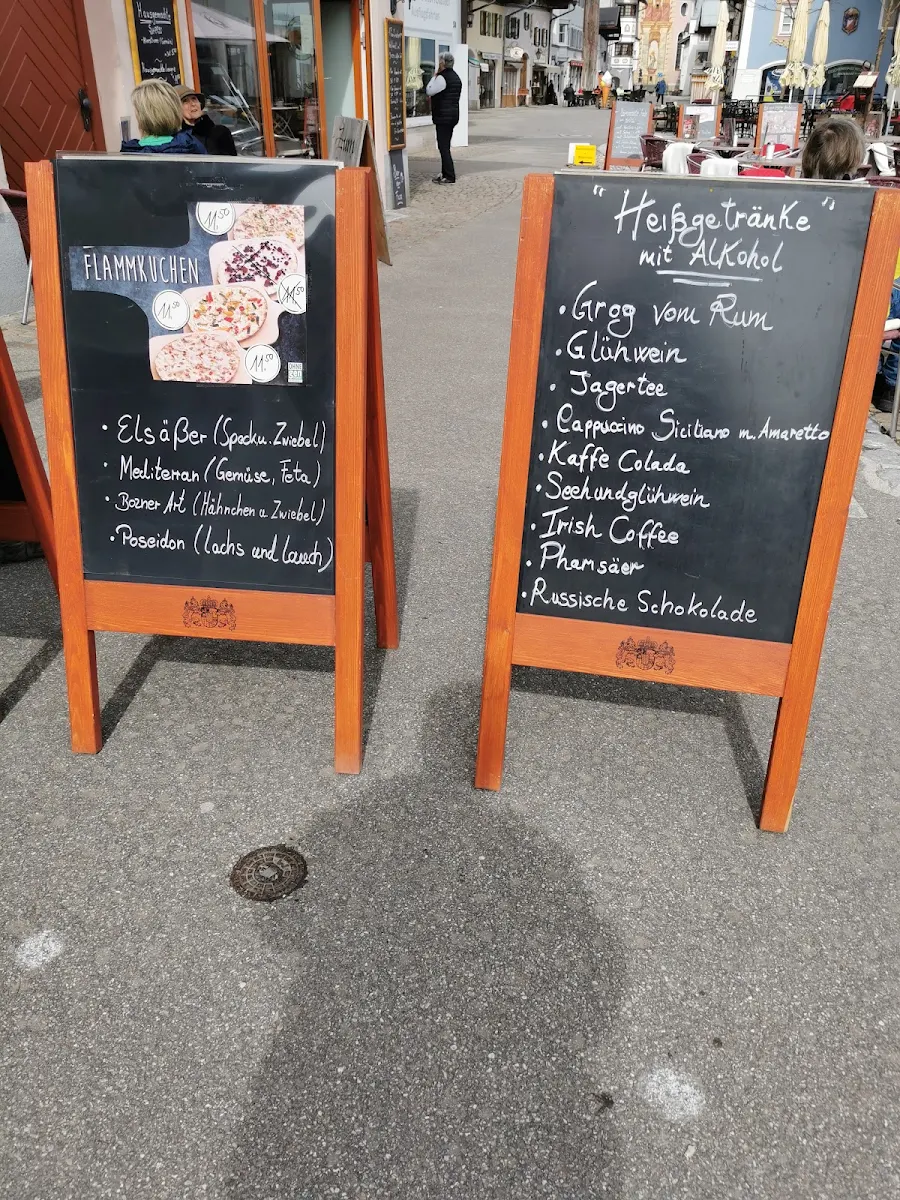 Hausgemachte
FLAMMKUCHEN
11.50
11.50
11.50
11.50
OHNE
• Elsäßer (Speck u. Zwiebel)
• Mediterran (Gemüse, Feta)
• Bozner Art (Hähnchen u Zwiebel)
• Poseidon (Lachs und Lauch)
"Heißgetränke"
mit Alkohol
• Grog vom Rum
• Glühwein
• Jagertee
• Cappuccino Siciliano m. Amaretto
• Kaffe Colada
• Seehundglühwein
• Irish Coffee
• Pharisäer
• Russische Schokolade